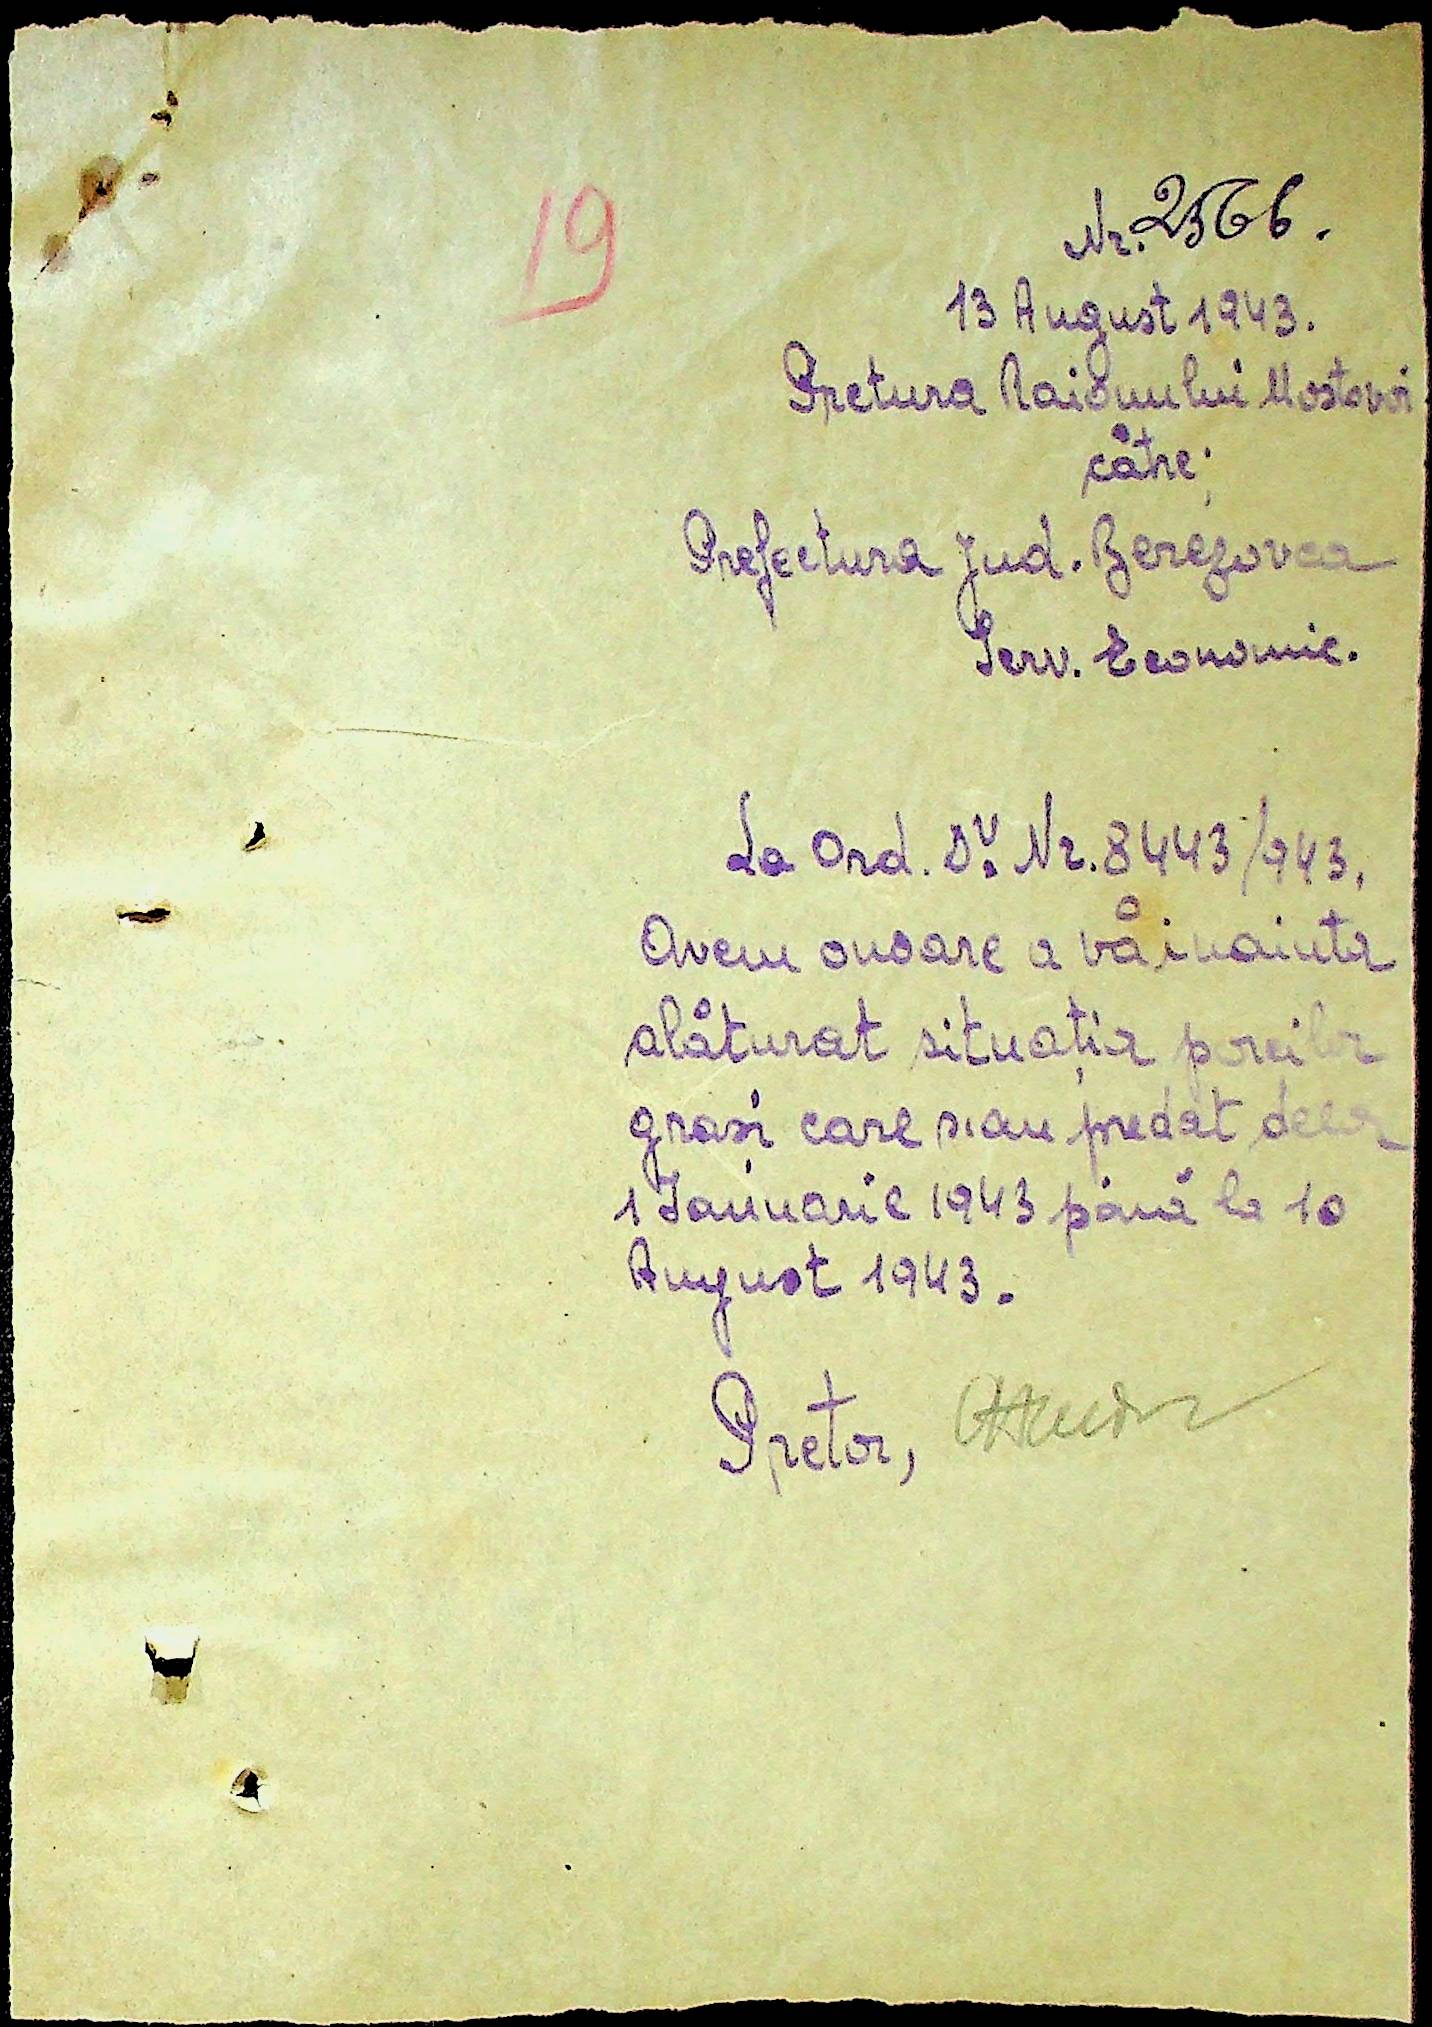 19
Nr. 2566.
13 August 1943.
Pretura Raionului Mostovoi
către;
Prefectura Jud. Berezovca
Serv. Economic.
La Ord. Dv. Nr. 8443/943,
Avem onoare a vă inainta
alăturat situația porcilor
grasi care s'au predat dela
1 Ianuarie 1943 până la 10
August 1943.
Pretor,